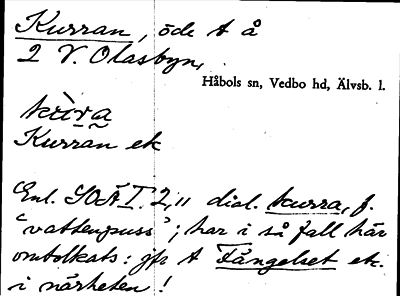 Kurran, öde t å
2 V. Olasbyn,
Håbols sn, Vedbo hd, Älvsb. l.
kùra
Kurran ek
Enl. SOÄ I. 2,11 dial. kurra, f.
"vattenpuss"; har i så fall här
omtolkats: jfr t Fängelset ek.
i närheten!